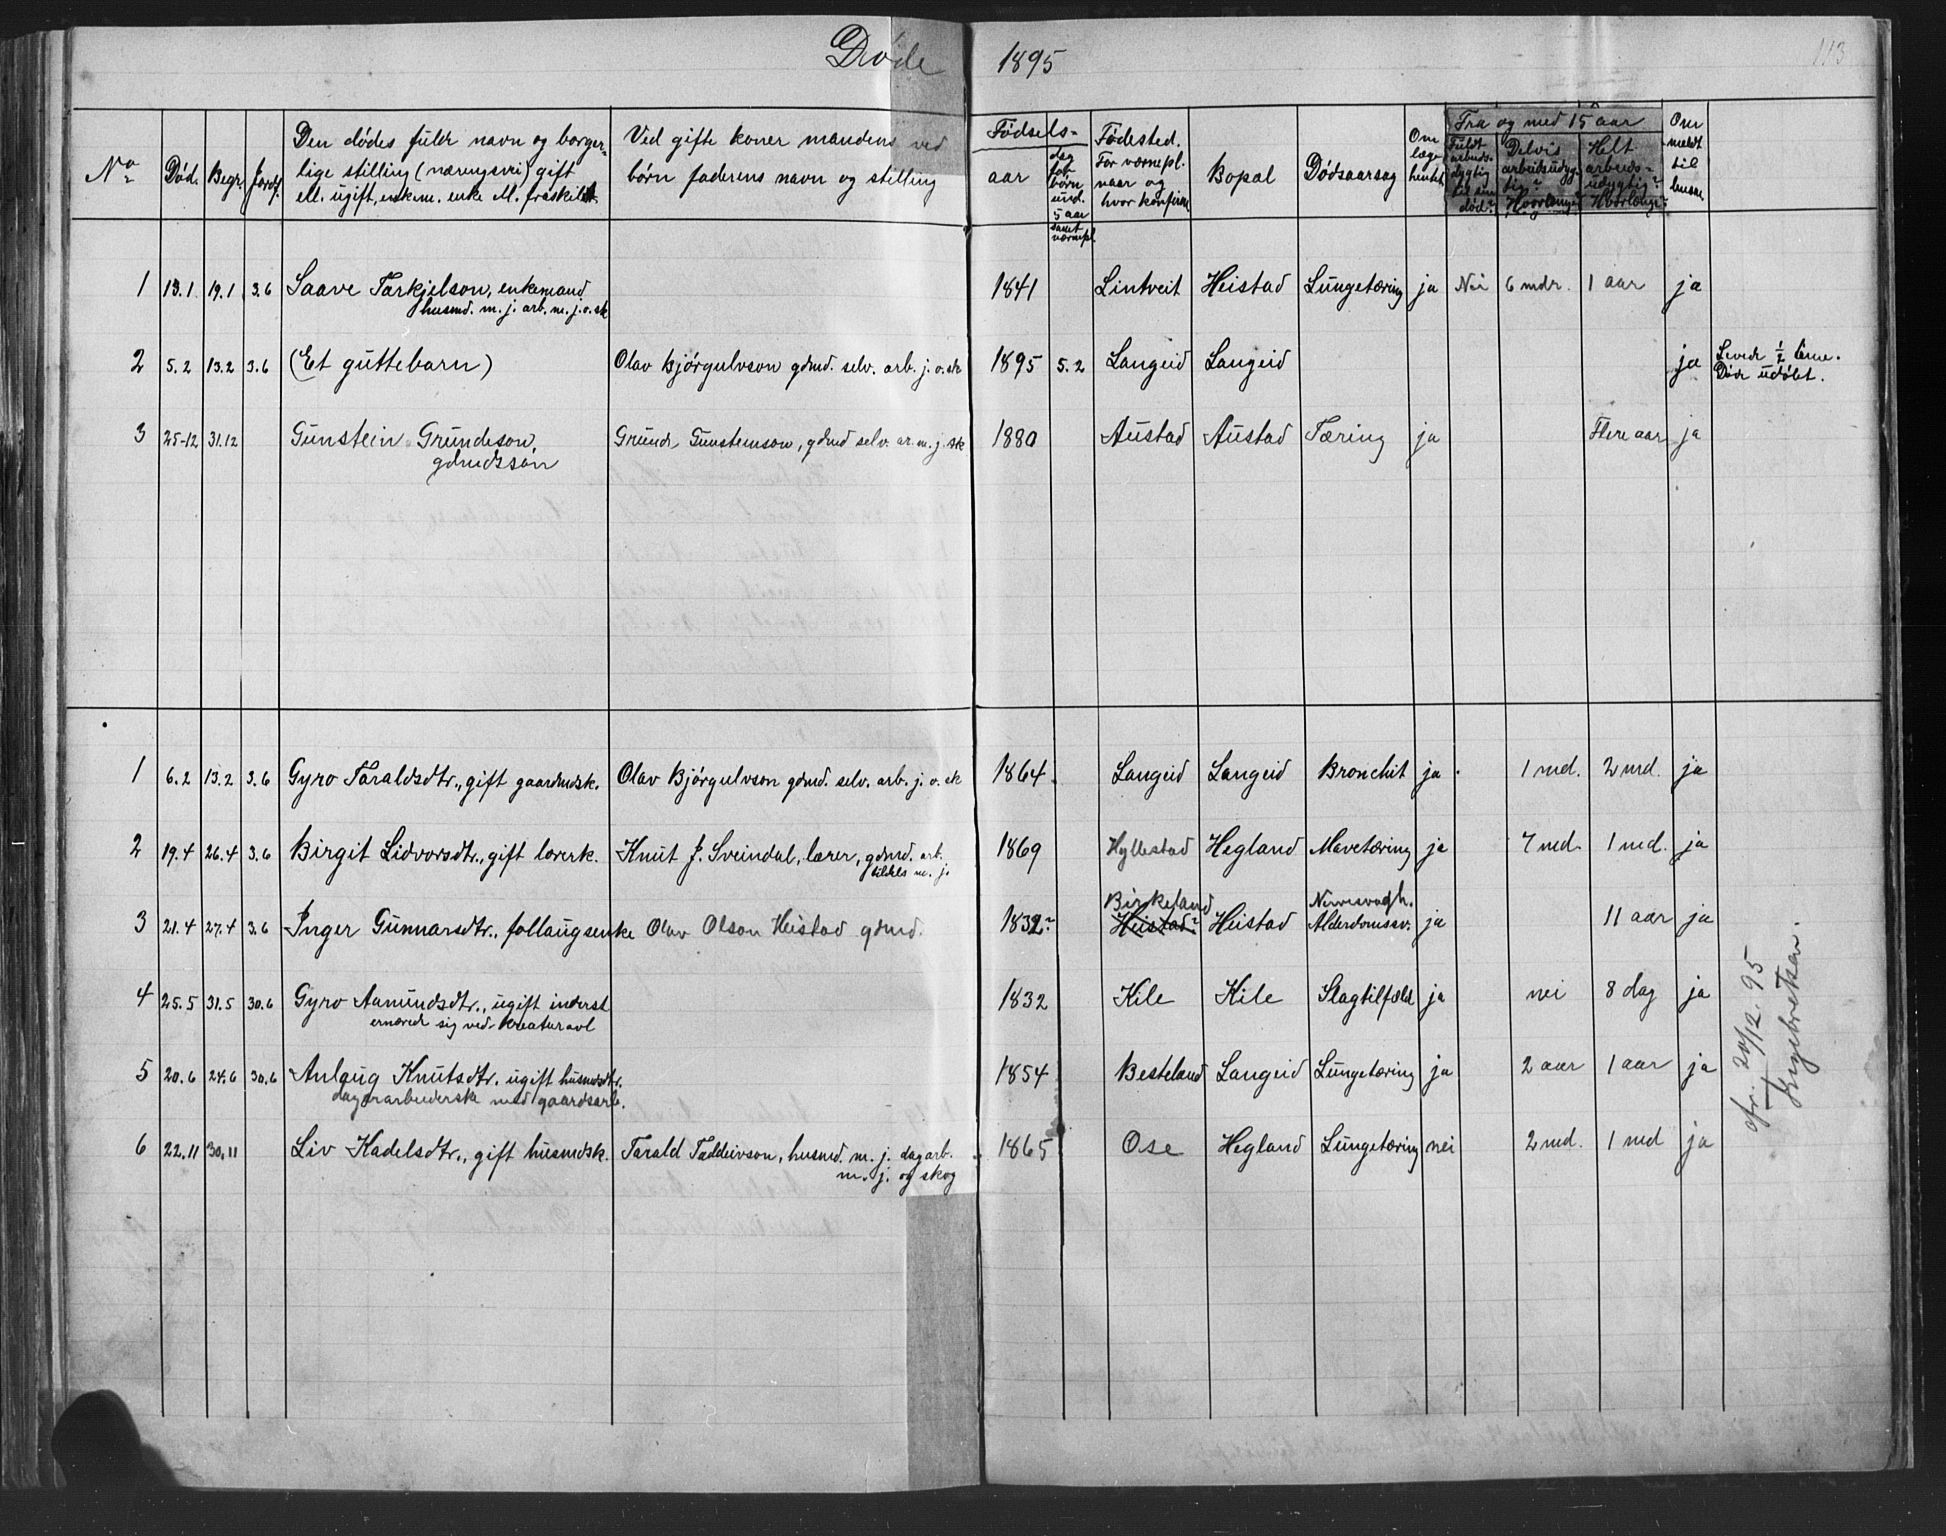 Døde 1895
113
No
Død.
Begr.
Jordf.
Den dødes fulde navn og borger-
lige stilling (næringsvei) gift
ell. ugift, enkem. enke ell. fraskilt
Ved gifte koner mandens ved
børn faderens navn og stilling
Fødsels-
aar
dag
for
børn
und.
5 aar
samt
værnepl.
Fødested.
For værnepl.
naar og
hvor konfirm.
Bopal
Dødsaarsag
Om
læge
hentet
Fra og med 15 aar
Fuldt
arbeids-
dygtig
til sin
død?
Delvis
arbeidsudyg-
tig?
Hvorlænge?
Helt
arbeids-
udygtig?
Hvorlænge?
Om
meldt
til
lensm.
1 13.1 19.1 3.6 Saave Tarkjelson, enkemand 1841 Lintveit Heistad Lungetæring ja Nei 6 mdr. 1 aar ja
husmd. m. j. arb. m. j. o. sk
2 5.2 13.2 3.6 (Et guttebarn) Olav Bjørgulvson gdmd. selv. arb. j. o. sk 1895 5.2 Langeid Langeid ja Levede ½ time.
Døde udøbt.
3 25-12 31.12 Gunstein Grundeson, Grunde Gunsteinson, gdmd selv. ar. m. j. sk 1880 Austad Austad Tæring ja Flere aar ja
gdmdssøn
1 6.2 13.2 3.6 Gyro Taraldsdtr., gift gaardmdsk. Olav Bjørgulvson gdmd. selv. arb. j. o. sk 1864. Langeid Langeid Bronchit ja 1 md. 2 md. ja
2 19.4 26.4 3.6 Birgit Lidvorsdtr., gift lærerk. Knut J. Sveindal, lærer, gdmd. arb. 1869 Hyllestad Hegland Mavetæring ja 7 md. 1 md. ja
tildels m. j.
Birkeland Nervesvagh.
3 21.4 27.4 3.6 Inger Gunnarsdtr., follaugsenke Olav Olson Heistad gdmd. 1832? Heistad? Heistad Alderdomssv. ja 11 aar ja
4 25.5 31.5 30.6 Gyro Aamundsdtr., ugift inderst 1832 Kile Kile Slagtilfælde ja nei 8 dag ja
ernærede sig ved kreaturavl
5 20.6 24.6 30.6 Anlaug Knutsdtr. ugift husmdsdtr. 1854 Besteland Langeid Lungetæring ja 2 aar 1 aar ja
dagararbeiderske med gaardsarb.
6 22.11 30.11 Liv Kadelsdtr., gift husmdsk. Tarald Taddeivson, husmd. m. j. dagarb. 1865 Ose Hegland Lungetæring nei 2 md. 1 md ja
m. j. og skog
20/12. 95
Ingebretsen.